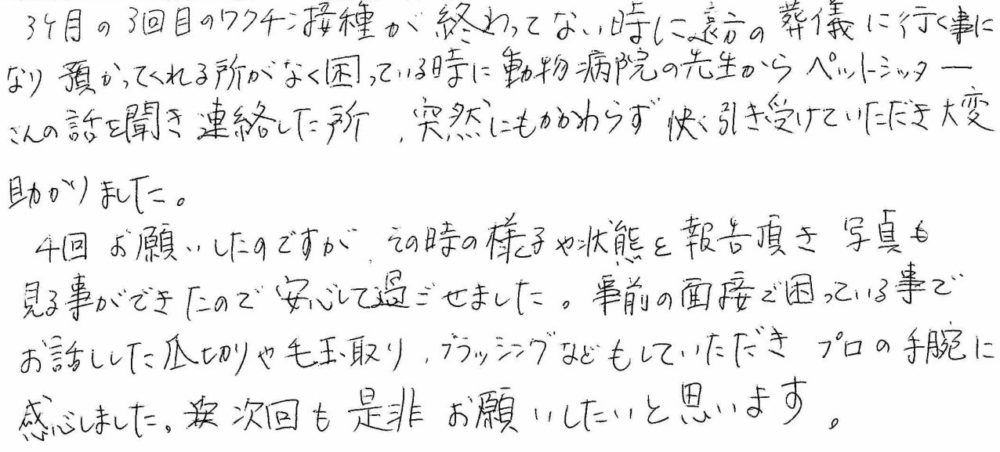 3ヶ月の3回目のワクチン接種が終わってない時に遠方の葬儀に行く事に
なり預かってくれる所がなく困っている時に動物病院の先生からペットシッター
さんの話を聞き連絡した所、突然にもかかわらず快く引き受けていただき大変
助かりました。
4回お願いしたのですが、その時の様子や状態を報告頂き写真も
見る事ができたので安心して過ごせました。事前の面接で困っている事で
お話しした爪切りや毛玉取り、ブラッシングなどもしていただきプロの手腕に
感心しました。次回も是非お願いしたいと思います。